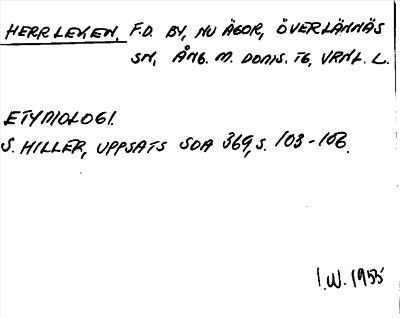 HERRLEKEN, F.D. BY, NU ÄGOR, ÖVERLÄNNÄS
SN, ÅNG. M. DOMS. TG, VRNL. L.
ETYMOLOGI.
S. HILLER, UPPSATS SOA 369, S. 103-106.
I.W. 1955